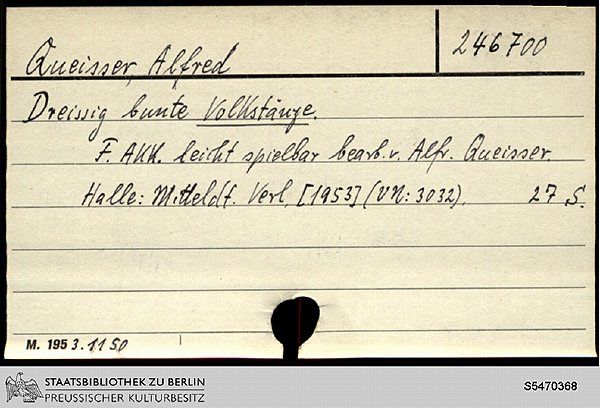 Queisser, Alfred
246700
Dreissig bunte Volkstänze.
F. Akk. leicht spielbar bearb. v. Alfr. Queisser.
Halle: Mitteldt. Verl. [1953] (VN: 3032). 27 S.
M. 195 3. 11 50
STAATSBIBLIOTHEK ZU BERLIN
PREUSSISCHER KULTURBESITZ
S5470368